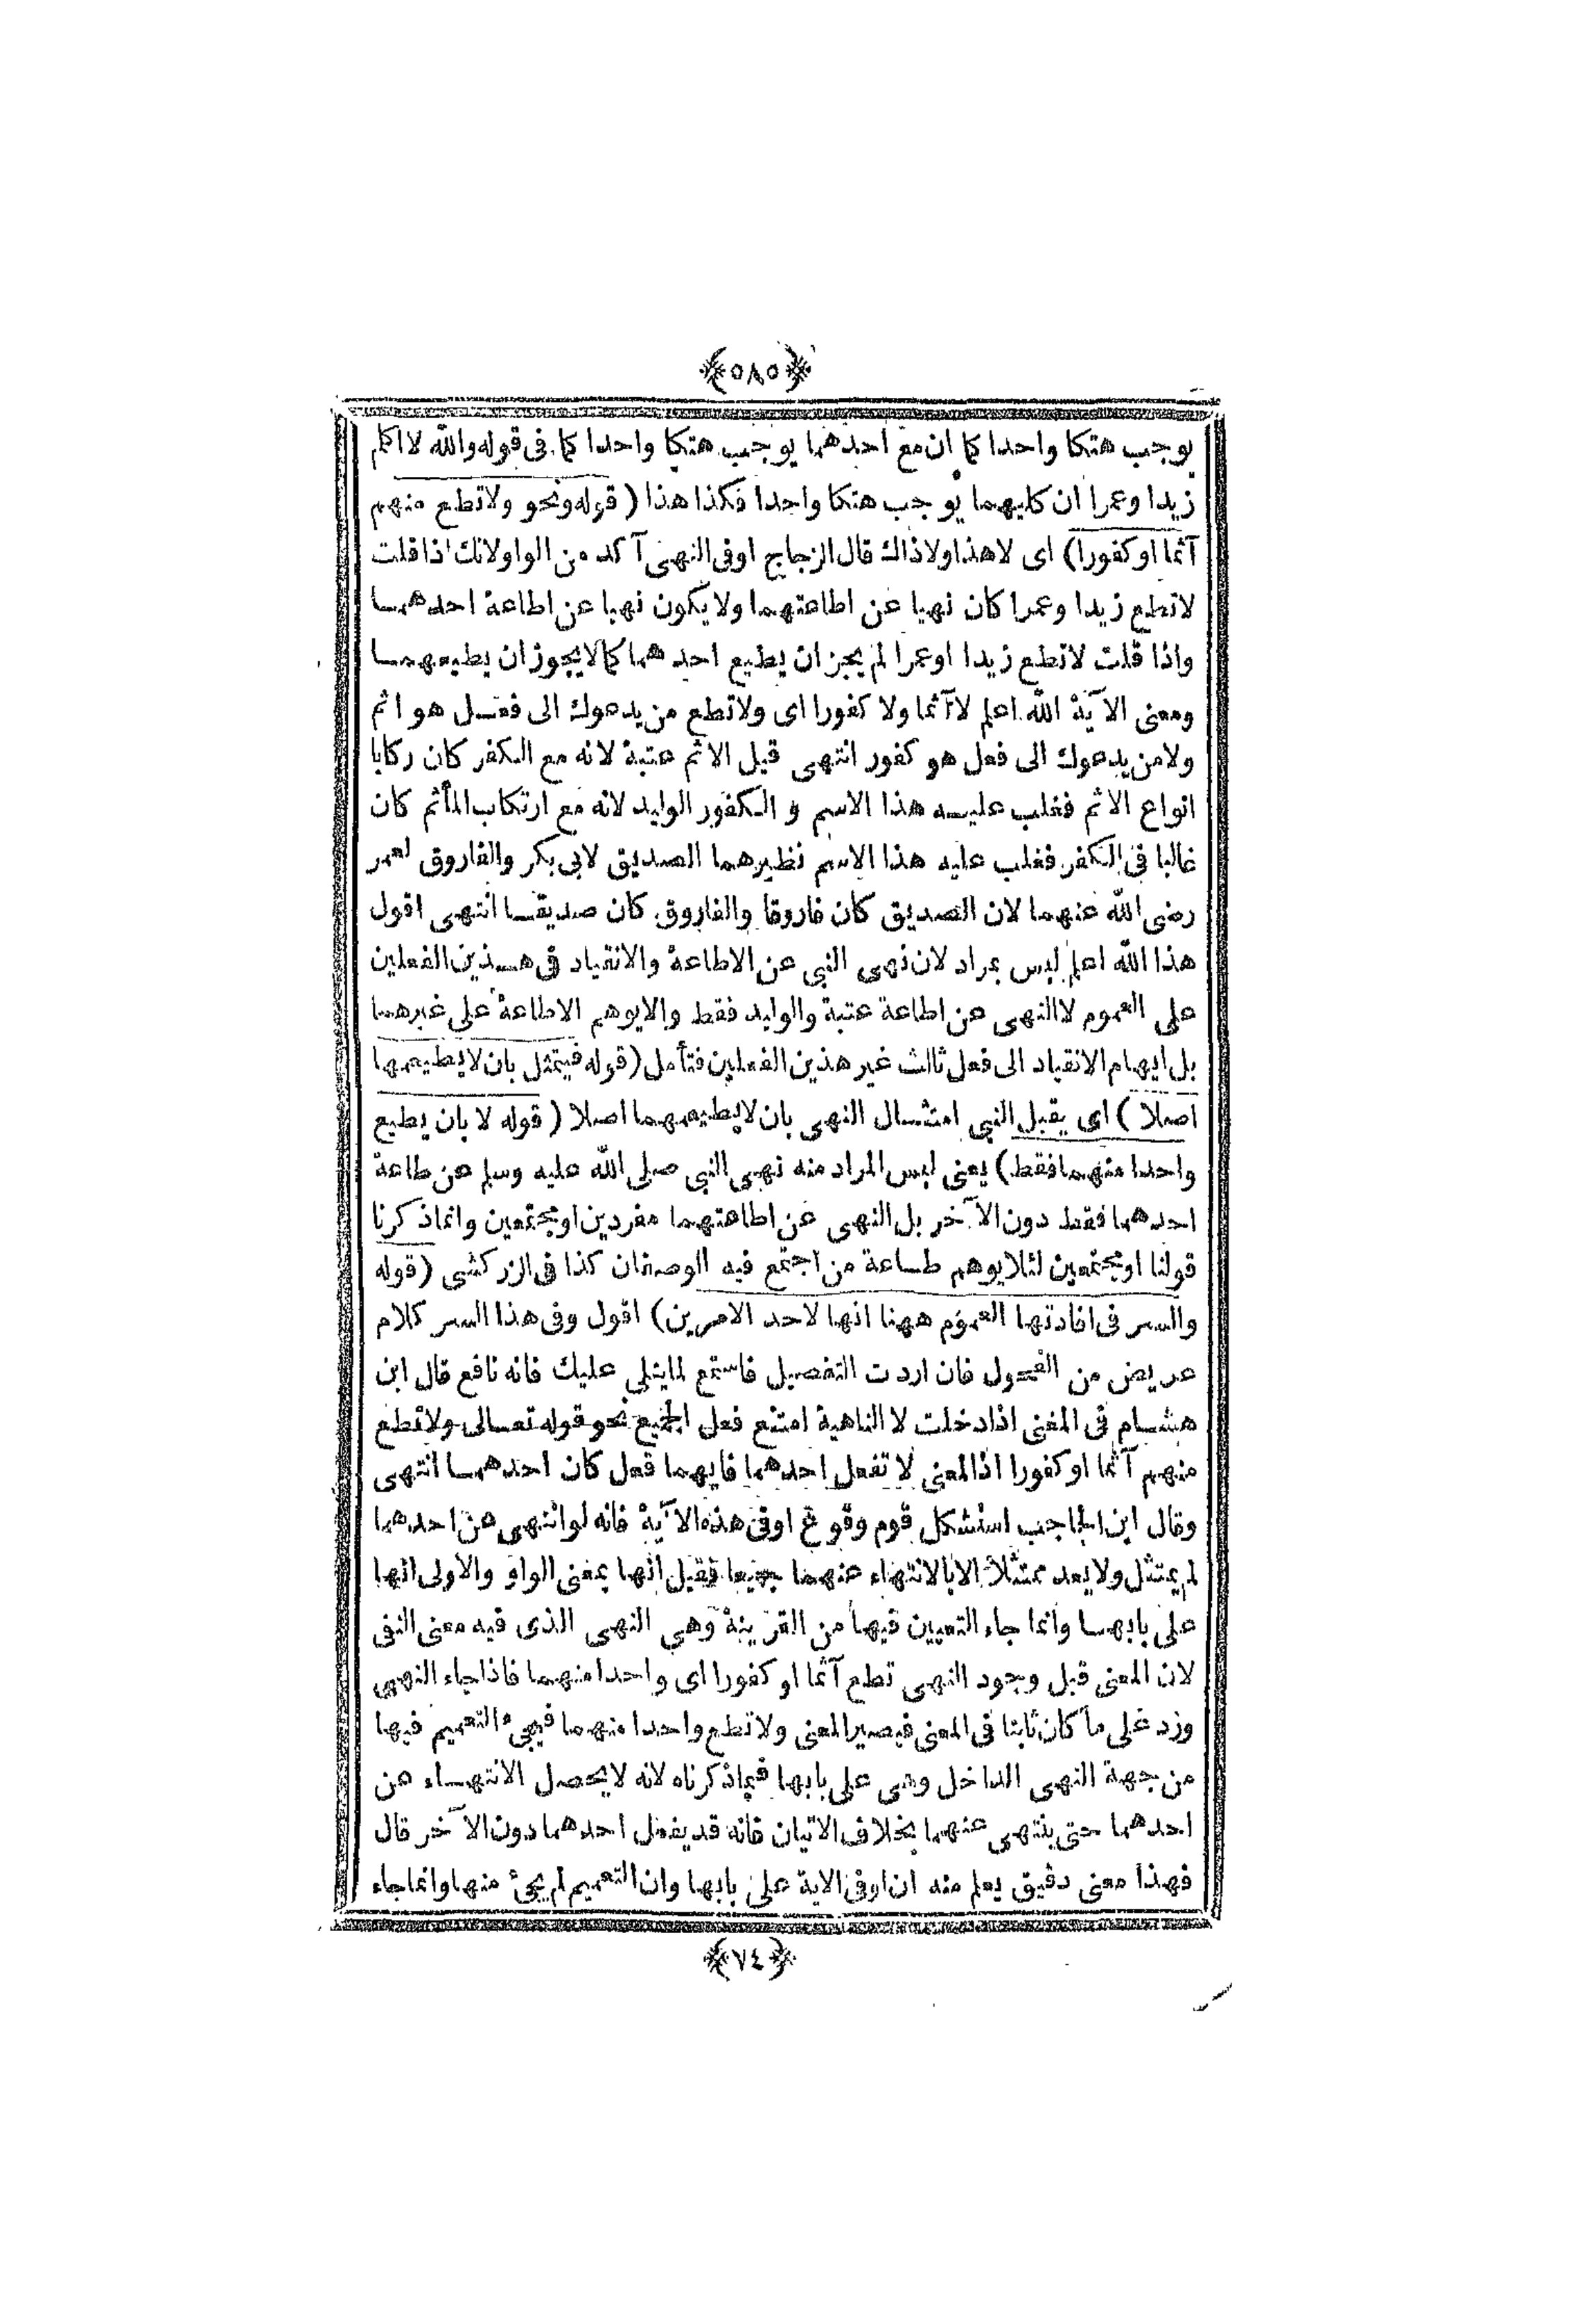 ﴿٥٨٥﴾
يوجب هتكا واحدا كما ان مع احدهما يوجب هتكا واحدا كما فى قوله والله لا اكلم
زيدا وعمرا ان كليهما يوجب هتكا واحدا فكذا هذا ( قوله ونحو ولا تطع منهم
آثما او كفورا) اى لا هذا ولا ذاك قال الزجاج او فى النهى آكد من الواو لانك اذا قلت
لا تطع زيدا وعمرا كان نهيا عن اطاعتهما ولا يكون نهيا عن اطاعة احدهمـا
واذا قلت لا تطع زيدا او عمرا لم يجز ان يطيع احدهما كما لا يجوز ان يطيعهمـا
ومعنى الآية الله اعلم لا آثما ولا كفورا اى ولا تطع من يدعوك الى فعـل هو اثم
ولا من يدعوك الى فعل هو كفور انتهى قيل الاثم عتبة لانه مع الكفر كان ركابا
انواع الاثم فغلب عليـه هذا الاسم و الكفور الوليد لانه مع ارتكاب المأثم كان
غالبا فى الكفر فغلب عليه هذا الاسم نظيرهما الصديق لابى بكر والفاروق لعمر
رضى الله عنهما لان الصديق كان فاروقا والفاروق كان صديقـا انتهى اقول
هذا الله اعلم ليس بمراد لان نهى النبى عن الاطاعة والانقياد فى هـذين الفعلين
على العموم لا النهى عن اطاعة عتبة والوليد فقط والا يوهم الاطاعة على غيرهما
بل ايهام الانقياد الى فعل ثالث غير هذين الفعلين فتأمل (قوله فيمتثل بان لا يطيعهما
اصلا ) اى يقبل النبى امتثـال النهى بان لا يطيعهما اصلا ( قوله لا بان يطيع
واحدا منهما فقط) يعنى ليس المراد منه نهى النبى صلى الله عليه وسلم عن طاعة
احدهما فقط دون الآخر بل النهى عن اطاعتهما مفردين او مجتمعين وانما ذكرنا
قولنا او مجتمعين لئلا يوهم طـاعة من اجتمع فيه الوصفان كذا فى الزركشى (قوله
والسر فى افادتها العموم ههنا انها لاحد الامرين) اقول وفى هذا السر كلام
عريض من الفحول فان اردت التفصيل فاستمع لما يتلى عليك فانه نافع قال ابن
هشـام فى المغنى اذا دخلت لا الناهية امتنع فعل الجميع نحو قوله تعـالى ولا تطع
منهم آثما او كفورا اذ المعنى لا تفعل احدهما فايهما فعل كان احدهمـا انتهى
وقال ابن الحاجب استشكل قوم وقوع او فى هذه الآية فانه لو انتهى عن احدهما
لم يمتثل ولا يعد ممتثلا الا بالانتهاء عنهما جميعا فقيل انها بمعنى الواو والاولى انها
على بابهـا وانما جاء التعيين فيها من القرينة وهى النهى الذى فيه معنى النفى
لان المعنى قبل وجود النهى تطع آثما او كفورا اى واحدا منهما فاذا جاء النهى
ورد على ما كان ثابتا فى المعنى فيصير المعنى ولا تطع واحدا منهما فيجىء التعميم فيها
من جهة النهى الداخل وهى على بابها فيما ذكرناه لانه لا يحصل الانتهـاء عن
احدهما حتى ينتهى عنهما بخلاف الاتيان فانه قد يفعل احدهما دون الآخر قال
فهذا معنى دقيق يعلم منه ان او فى الاية على بابها وان التعميم لم يجئ منها وانما جاء
﴿٧٤﴾